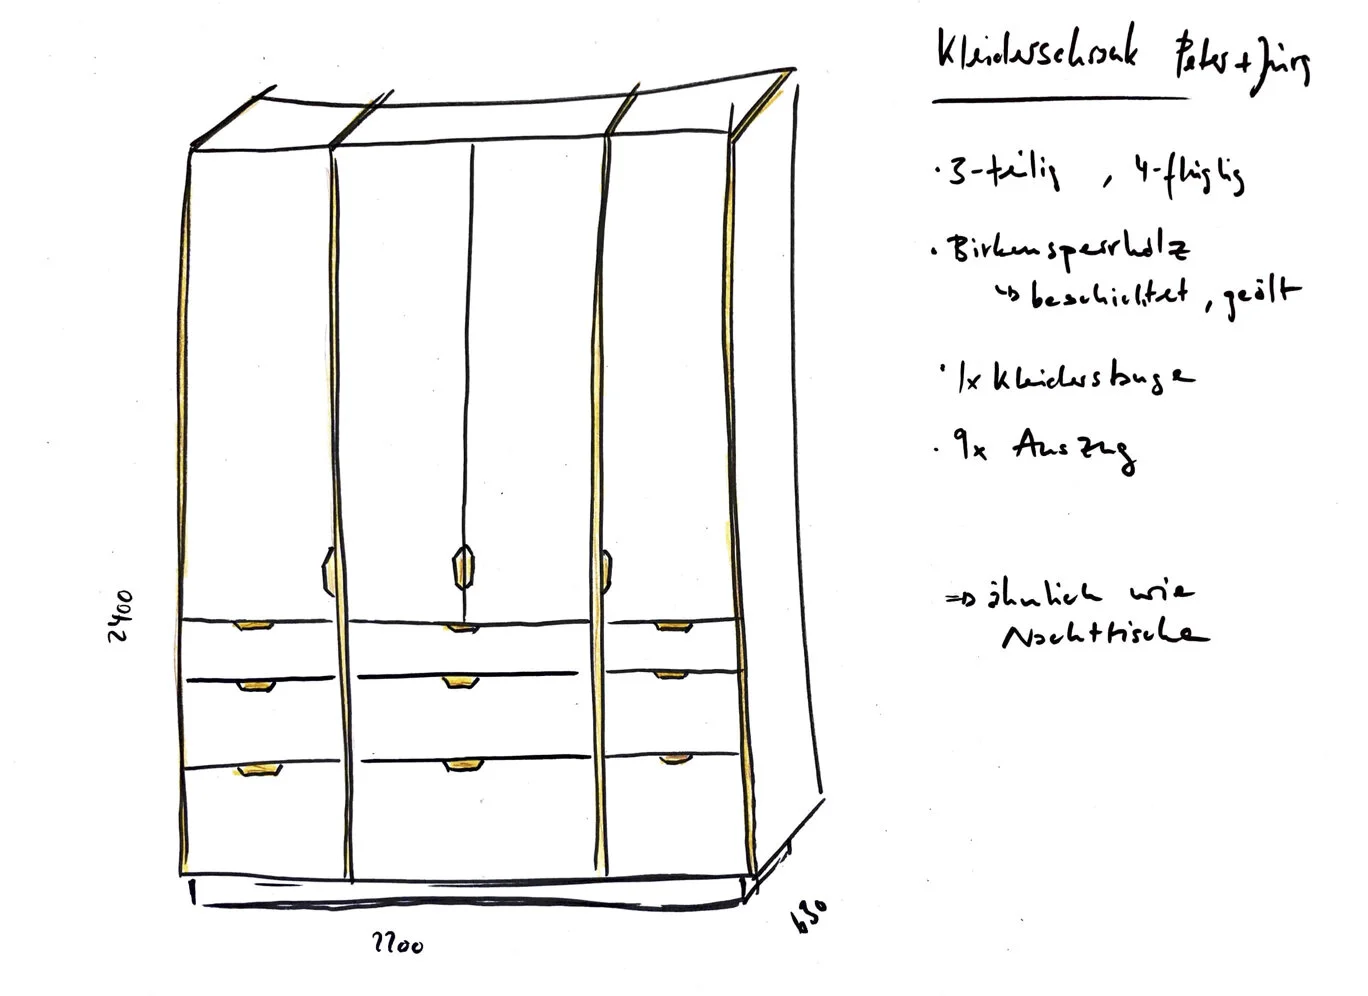 Kleiderschrank Peter + Jürg
· 3-teilig , 4-flüglig
· Birkensperrholz
↳ beschichtet , geölt
· 1x Kleiderstange
· 9x Auszug
⇒ ähnlich wie
Nachttische
2400
2200
630